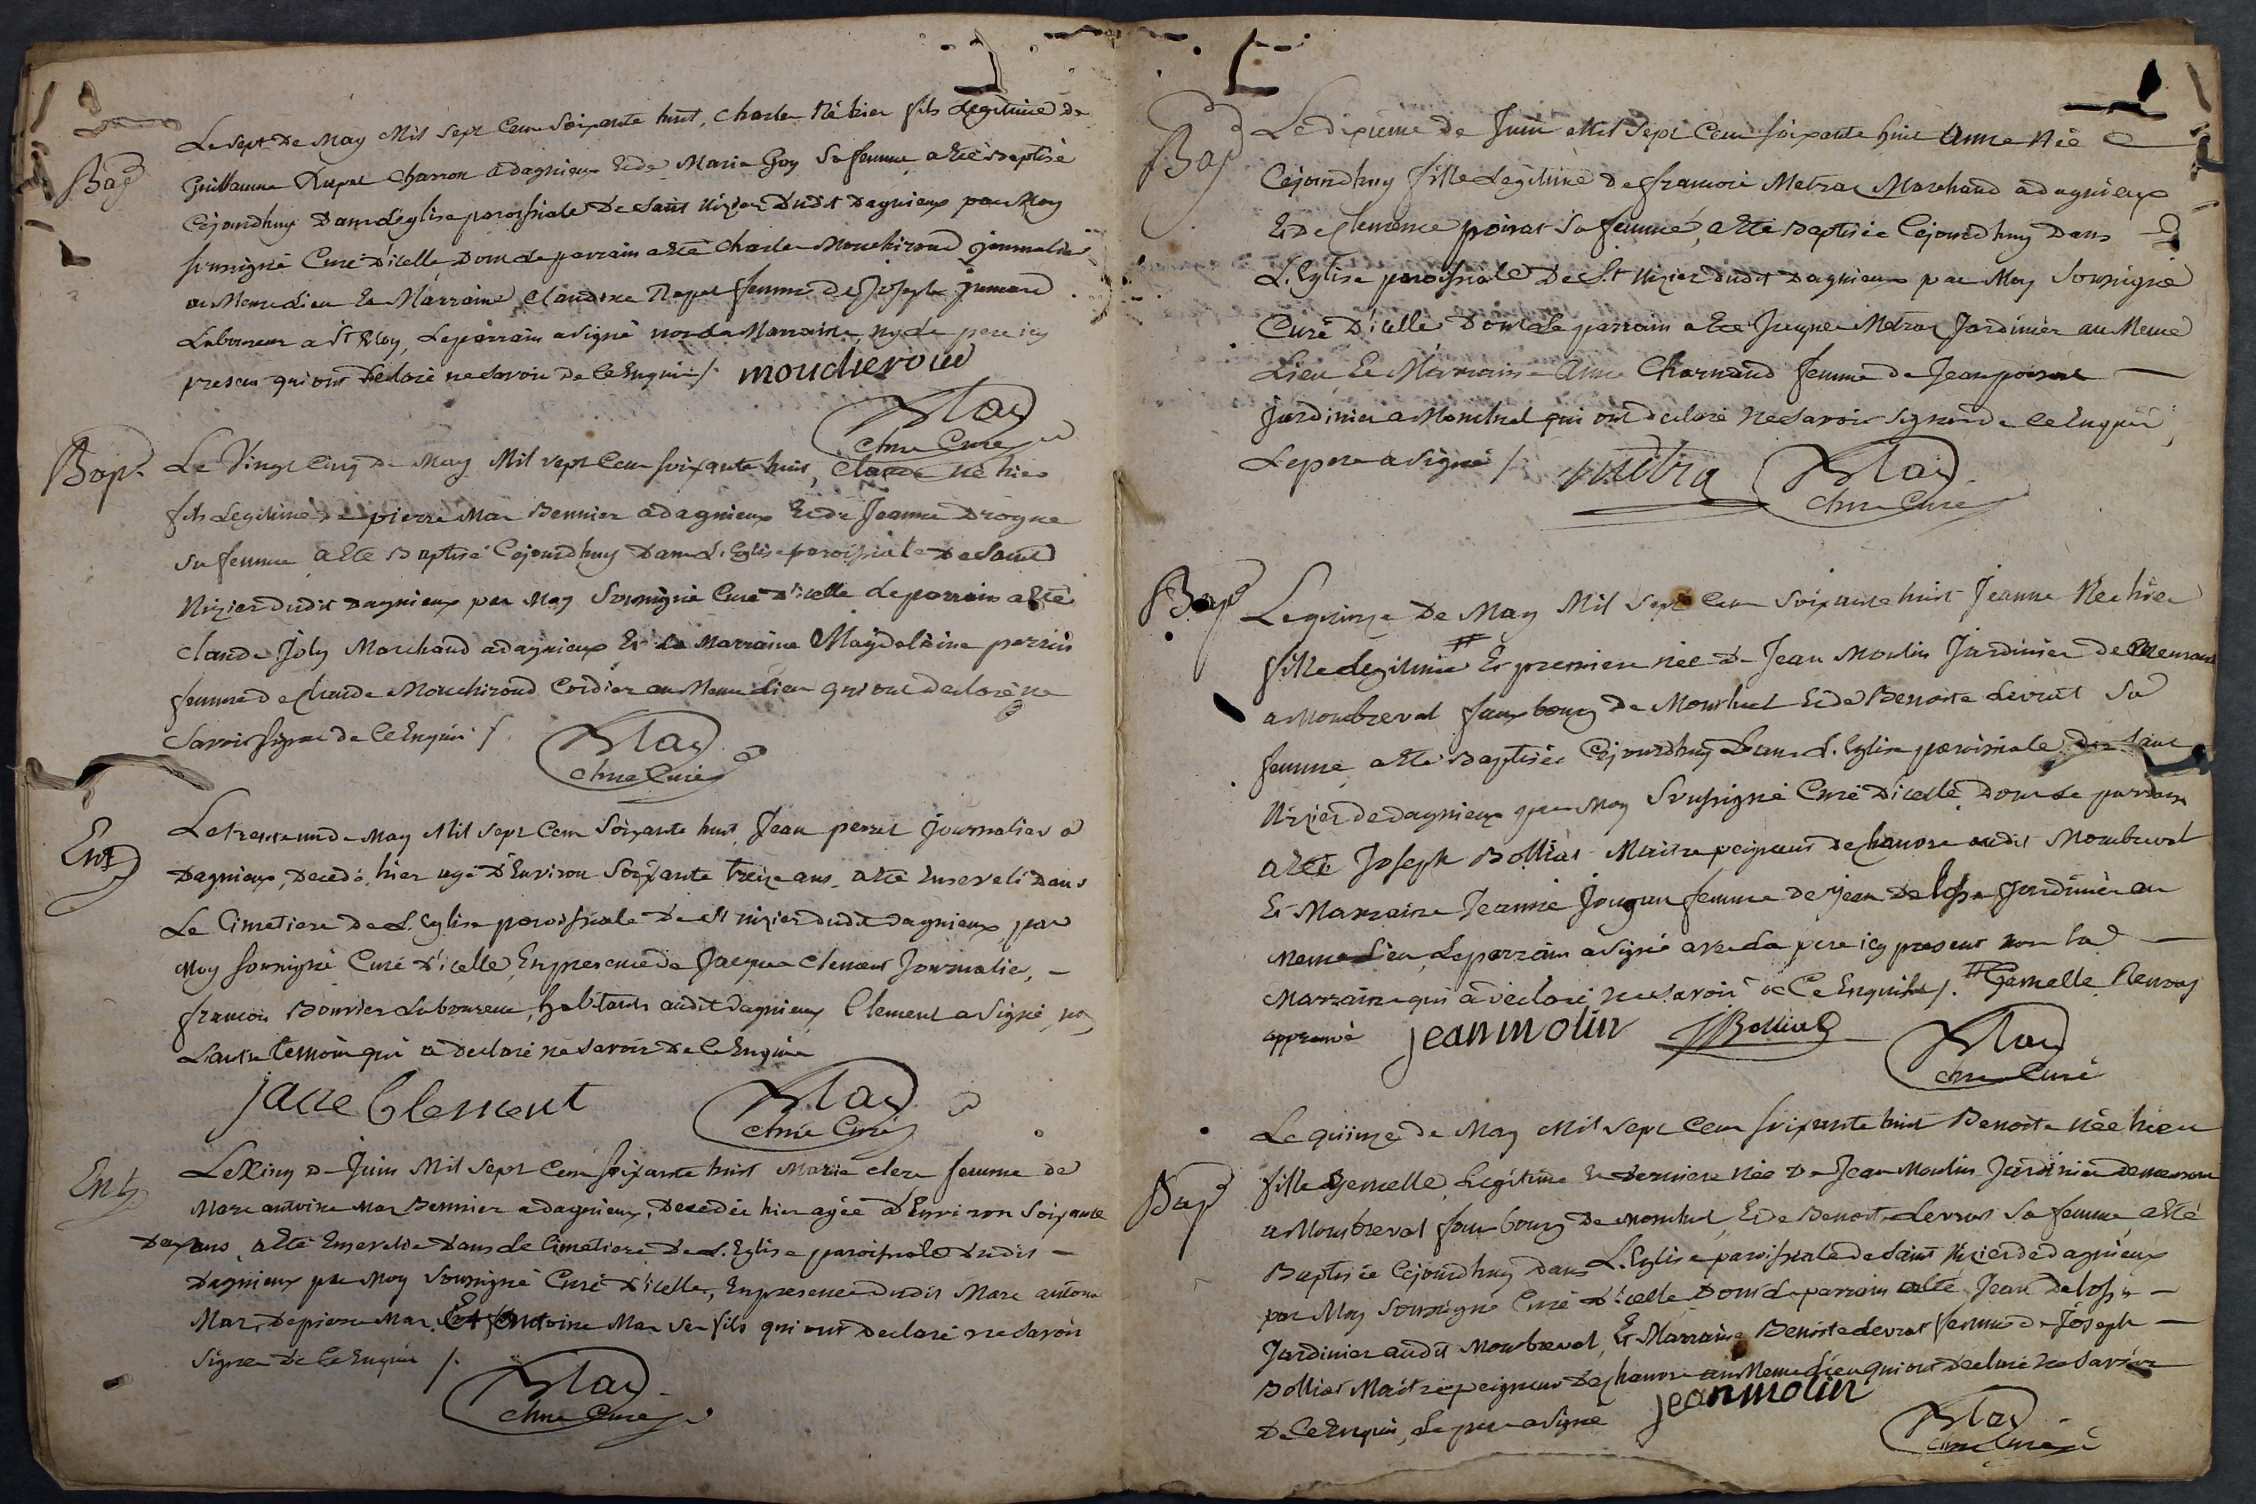 Bap
Le sept De May Mil sept Cent soixante huit, Charle Né hier fils Legitime de
Guillaume Rupal charron a dagnieux Et de Marie Goy Sa femme a Eté Baptisé
Cejourdhuy Dans l'Eglise paroissiale De saint Nizier Dudit Dagnieux par Moy
soussigné Curé D'icelle Dont Le parrain a Eté Charle Mouchiroud journalier
au Meme Lieu Et Marraine Claudine femme de Joseph
Laboureur a St Eloy, Le parrain a signé non La Marraine, ny Le pere icy
present qui ont Declaré ne savoir De ce Enquis /. moucheroud
Blad
Curé
Bap.
Le Vingt Cinq De May Mil sept Cent soixante huit, Claude Né hier
fils Legitime De pierre Mar Bennier a dagnieux Et de Jeanne Drogue
sa femme a Eté Baptisé Cejourdhuy Dans L'Eglise paroissiale De saint
Nizier Dudit Dagnieux par Moy Soussigné Curé D'icelle Le parrain a Eté
claude Joly Marchand a dagnieux Et La Marraine Magdelaine perrin
femme de claude Mouchiroud Cordier au Meme Lieu qui ont declaré ne
savoir signer de ce Enquis /.
Blad
Curé
Ent
Le trente un De May Mil sept Cent Soixante huit Jean perret journalier a
Dagnieux, Decedé hier agé D'Environ Soixante treize ans, a Eté Enseveli Dans
Le Cimetiere De L'Eglise paroissiale De St nizier dudit dagnieux, par
Moy soussigné Curé D'icelle En presence De Jacque Clement Journalier, -
francois Bouvier Laboureur, habitants audit dagnieux Clement a Signé, non
L'autre temoin qui a Declaré ne savoir De ce Enquis
jacce Clement
Blad
Curé
Ent
Le Cinq De Juin Mil sept Cent soixante huit Marie clere femme de
Marc antoine Mar Bennier a dagnieux, Decedée hier agée D'Environ Soixante
Deux ans, a Eté Ensevelie Dans Le Cimetiere De L'Eglise paroissiale Dudit -
Dagnieux par Moy Soussigné Curé D'icelle, En presence Dudit Marc antoine
Mar, De pierre Mar Et Antoine Mar Ses fils qui ont Declaré ne savoir
Signer De ce Enquis /.
Blad
Curé
Bap
Le dixieme de Juin Mil sept Cent soixante huit Anne Née
Cejourdhuy fille Legitime De francois Metra Marchand a dagnieux
Et De Clemence poirat Sa femme, a Eté Baptisée Cejourdhuy Dans
L'Eglise paroissiale De St Nizier dudit Dagnieux par Moy Soussigné
Curé D'icelle Dont Le parrain a Eté Jacque Metra Jardinier au Meme
Lieu, Et Marraine Anne Charnaud femme De Jean poirat -
Jardinier a Montluel qui ont declaré Ne savoir signer De ce Enquis,
Le pere a Signé /. metra
Blad
Curé
Bap
Le quinze De May Mil Sept Cent Soixante huit Jeanne Née hier
fille Legitime # Et premiere née De Jean Moulin Jardinier
a Montbreval faux bourg De Montluel Et de Benoite devrat Sa
femme a Eté Baptisée Cejourdhuy Dans L'Eglise paroissiale De saint
Nizier De dagnieux par Moy Soussigné Curé D'icelle, Dont Le parrain
a Eté Joseph Bolliat Maitre peigneur De chanvre audit Montbreval
Et Marraine Jeanne femme de Jean Delosse Jardinier au
Meme Lieu, Le parrain a Signé avec Le pere icy present non La -
Marraine qui a declaré Ne savoir de ce Enquis /. # Gemelle Renvoy
approuvé jean molin JBolliat
Blad
Curé
Bap
Le quinze De May Mil Sept Cent soixante huit Benoite Née hier
fille Gemelle, Legitime Et derniere Née De Jean Moulin Jardinier
a Montbreval faux bourg De Montluel, Et de Benoite devrat Sa femme, a Eté
Baptisée Cejourdhuy Dans L'Eglise paroissiale De saint Nizier De dagnieux
par Moy Soussigné Curé D'icelle Dont Le parrain a Eté Jean Delosse -
Jardinier audit Montbreval, Et Marraine Benoite devrat femme De Joseph -
Bolliat Maitre peigneur De chanvre au Meme Lieu qui ont Declaré Ne savoir
De ce Enquis, Le pere a Signé jean molin
Blad
Curé